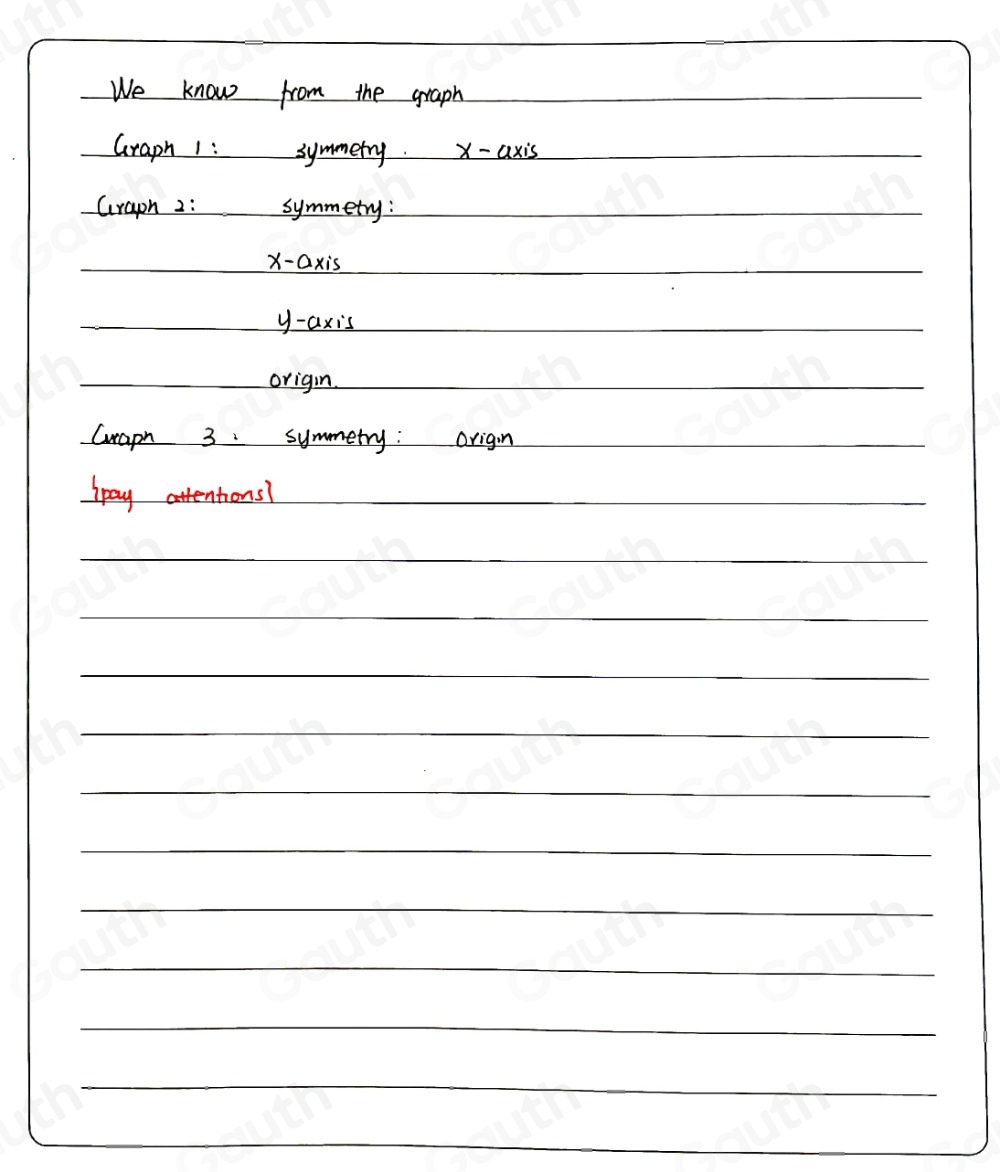 We know from the graph
Graph 1: symmetry. x-axis
Graph 2: symmetry:
x-axis
y-axis
origin.
Graph 3: symmetry: origin
{pay attentions}